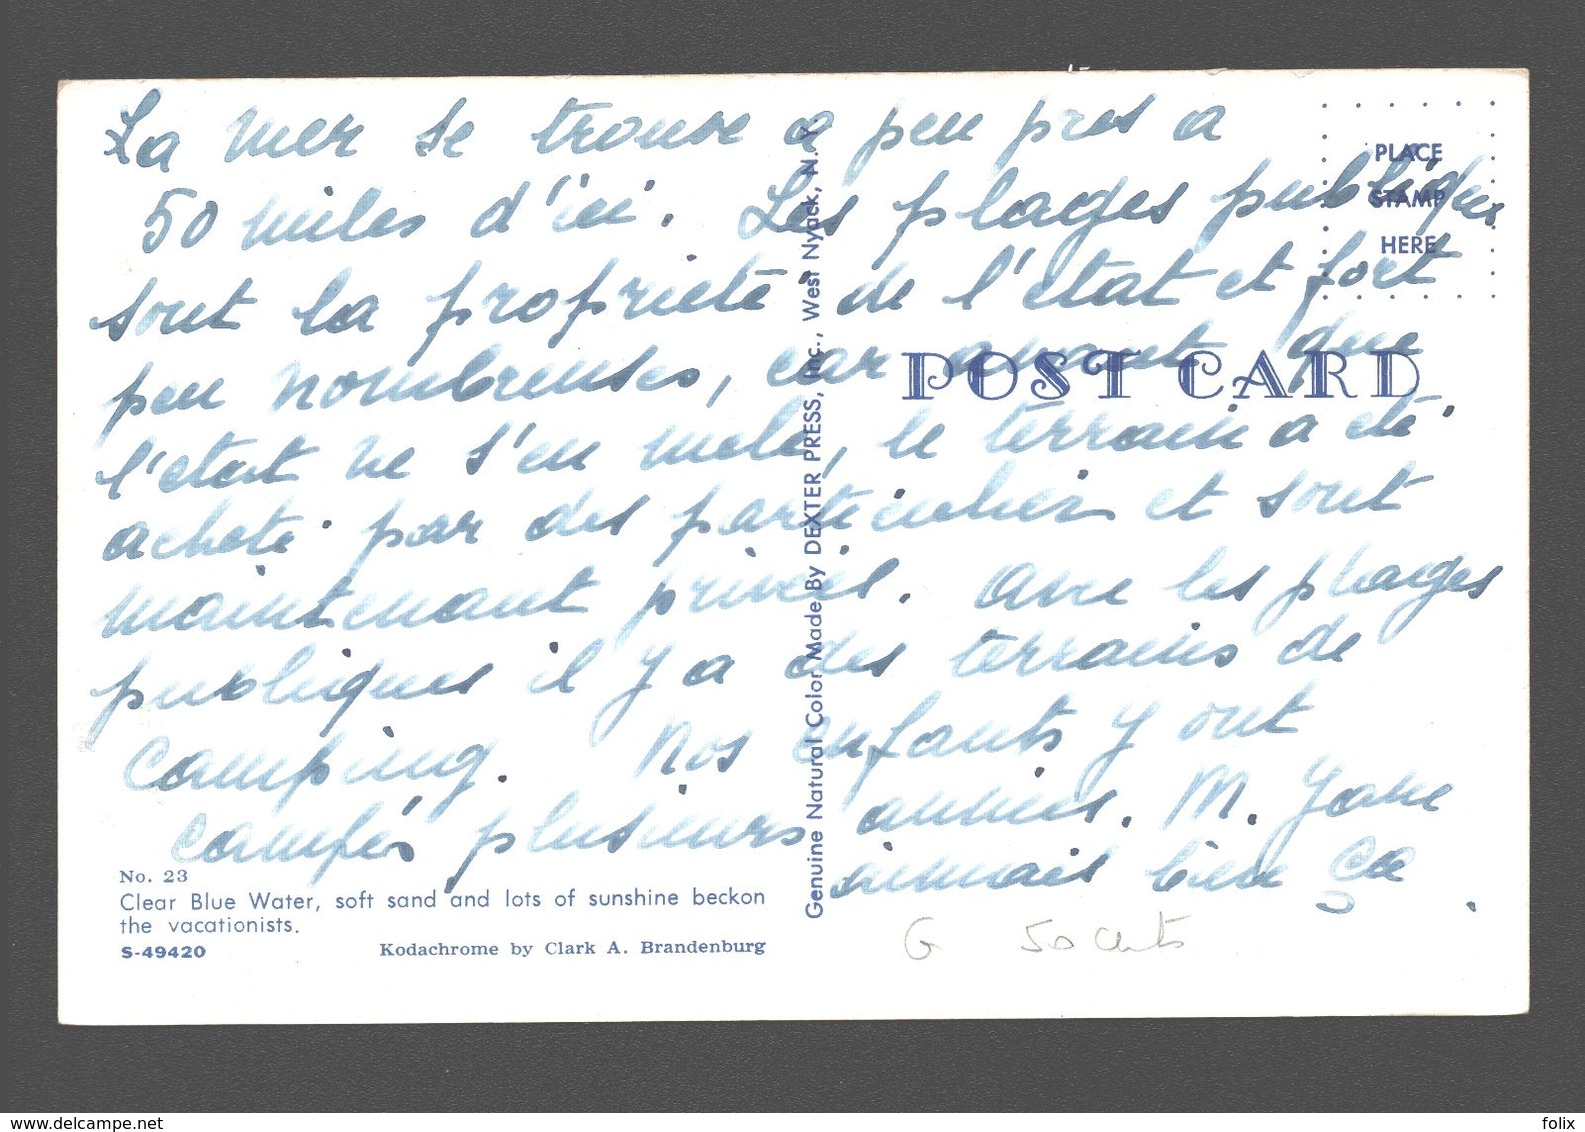 La mer se trouve a peu pres a
50 miles d'ici. Les plages publiques
sont la propriété de l'état et fort
peu nombreuses, car avant que
l'etat ne s'en mele, le terrain a été
acheté par des particuliers et sont
maintenant privées. Avec les plages
publiques il y a des terrains de
camping. Nos enfants y ont
campés plusieurs années. M.
aimais bien ça.
PLACE
STAMP
HERE
POST CARD
Genuine Natural Color Made By DEXTER PRESS, Inc., West Nyack, N. Y.
No. 23
Clear Blue Water, soft sand and lots of sunshine beckon
the vacationists.
S-49420 Kodachrome by Clark A. Brandenburg
G 50
www.delcampe.net
folix